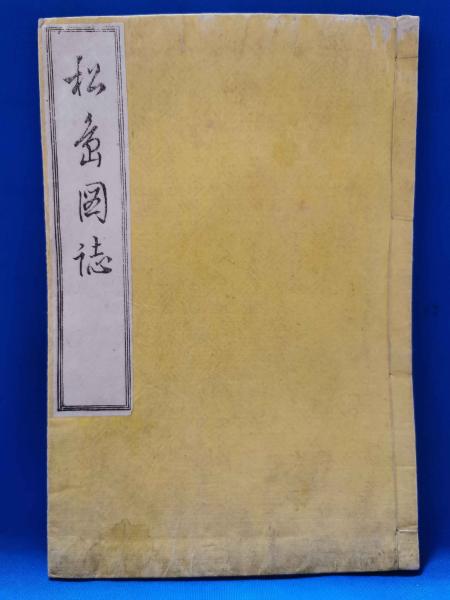 松島図誌